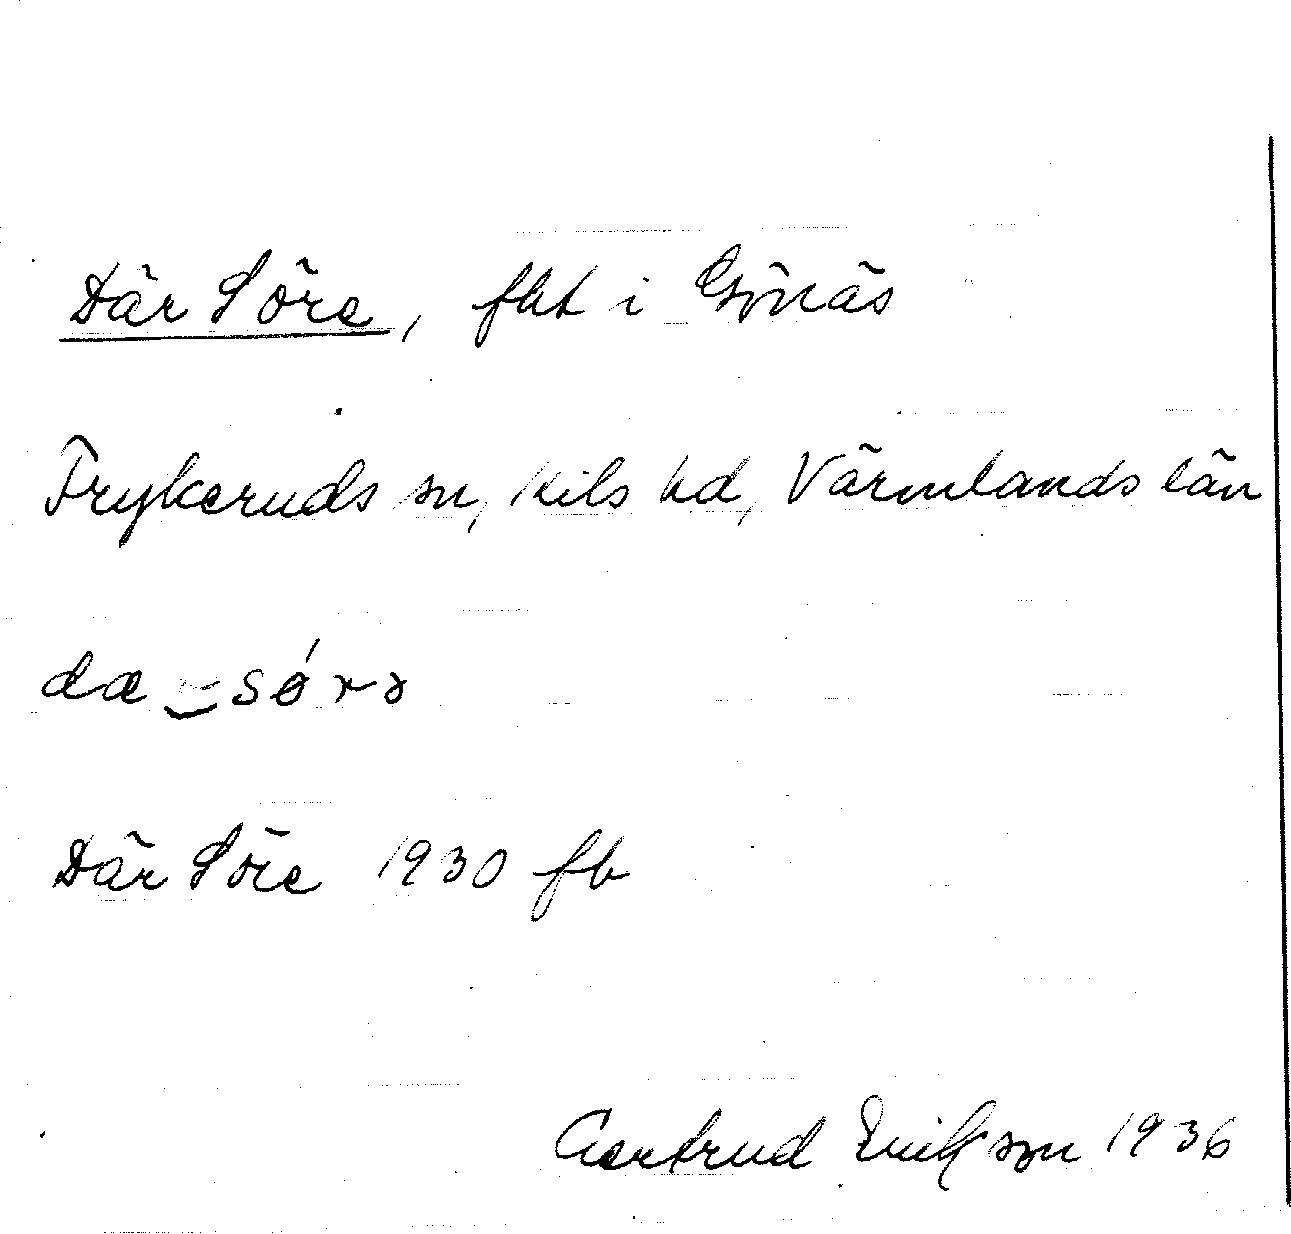 Där Söre, fht i Gönäs
Frykeruds sn, Kils hd, Värmlands län
dæ‿sørə
Där Söre 1930 fb
Gertrud Erikson 1936